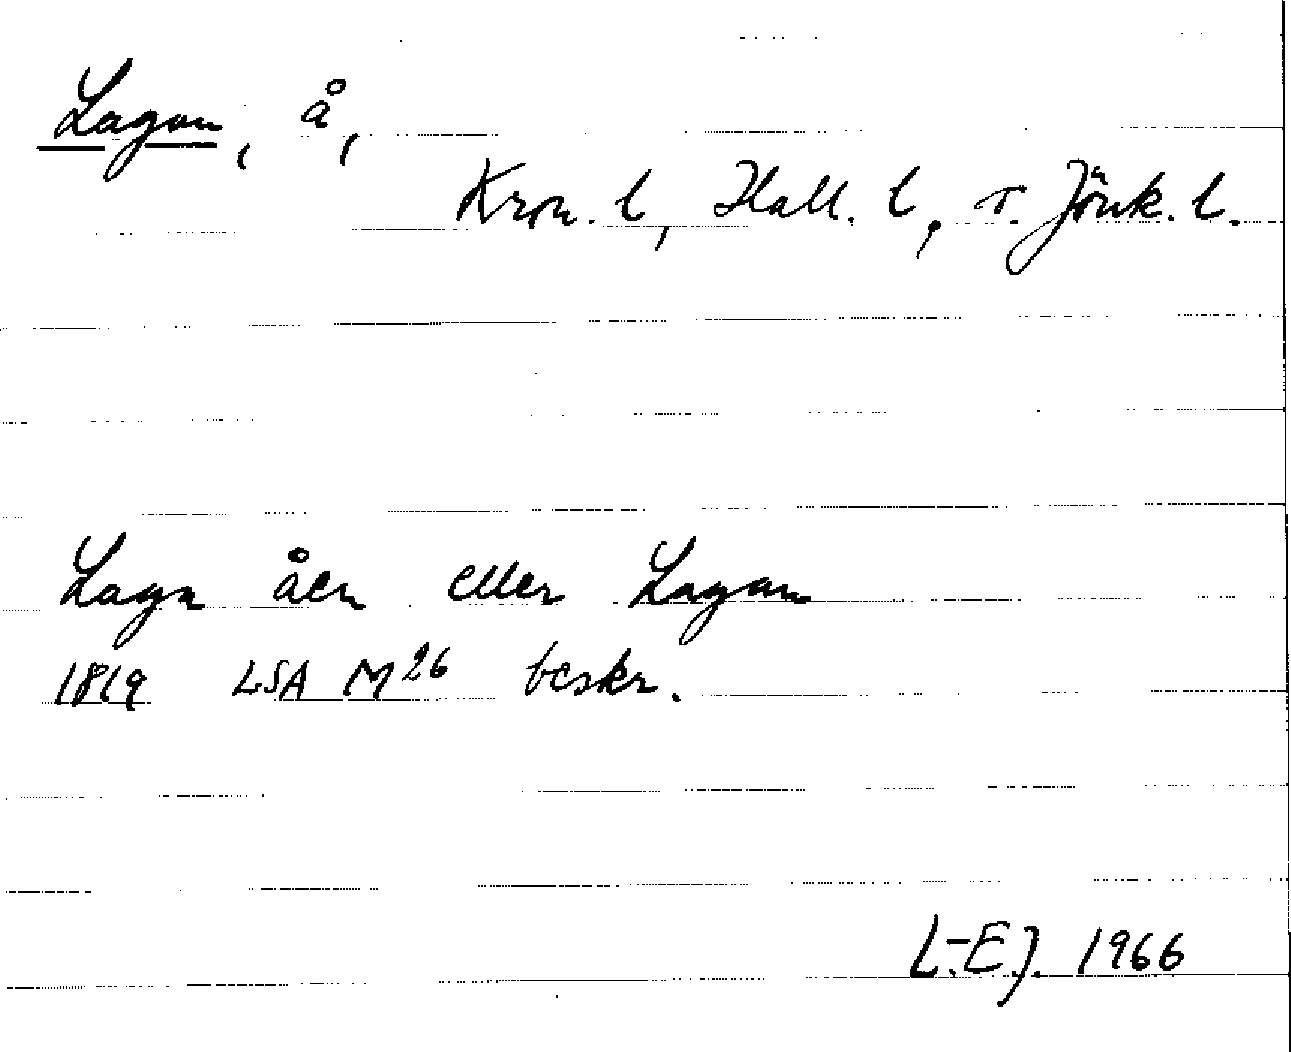 Lagan, å,
Kron. l, Hall. l, o. Jönk. l.
Laga åen eller Lagan
1819 LSA M26 beskr.
L.-E.J. 1966